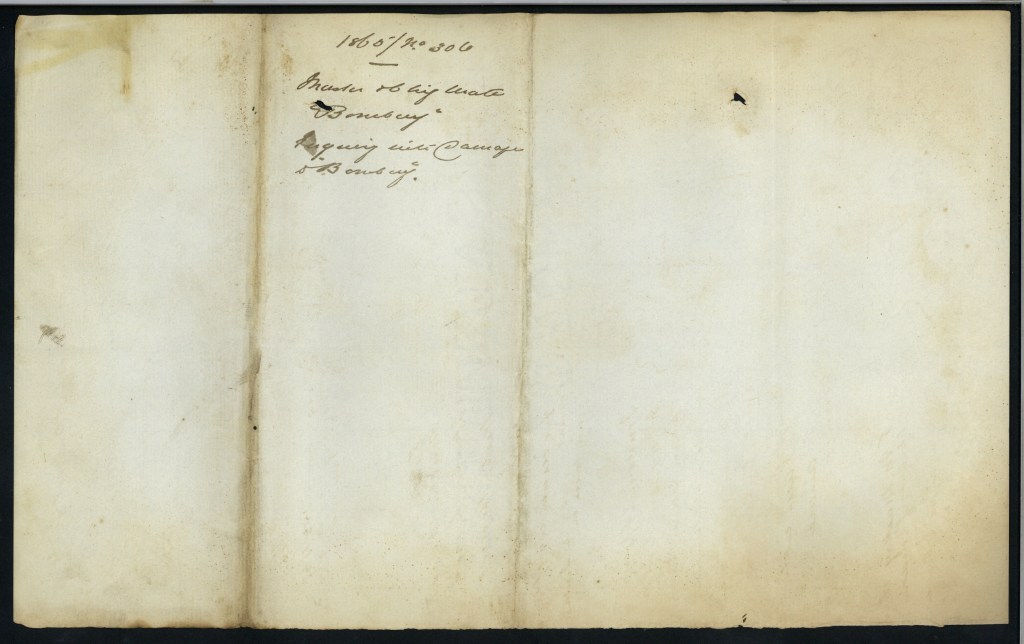 1865/No 306
Master & Chf Mate
"Bombay"
Inquiry into Damage
to "Bombay".